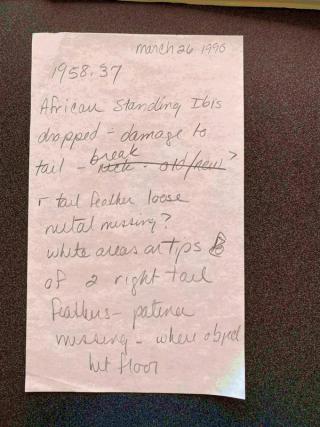 march 26 1990
1958.37
African Standing Ibis
dropped - damage to
tail - break - old/new?
r tail feather loose
metal missing?
white areas on tips
of 2 right tail
feathers - patina
missing - where object
hit floor